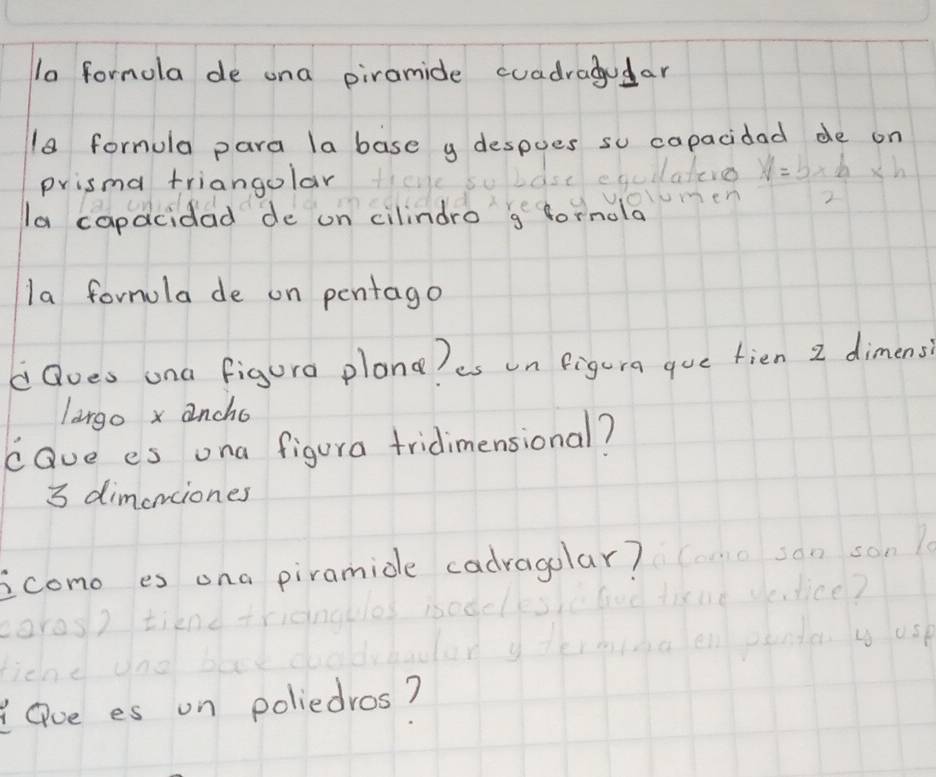 la formula de una piramide cuadragudar
la formula para la base y despues su capacidad de un
prisma triangular tiene su base equilatero V = b x h x h
2
la capacidad de un cilindro y formula
la unidad de la medida area y volumen
la formula de un pentago
¿Ques una figura plana? es un figura que tien 2 dimensi
largo x ancho
¿Que es una figura tridimensional?
3 dimenciones
¿como es una piramide cadragular? ¿Como son son la
caras? tiene triangulos isosceles, ¿Que tiene vertice?
tiene una base cuadrangular y termina en punta y usp
¿Que es un poliedros?